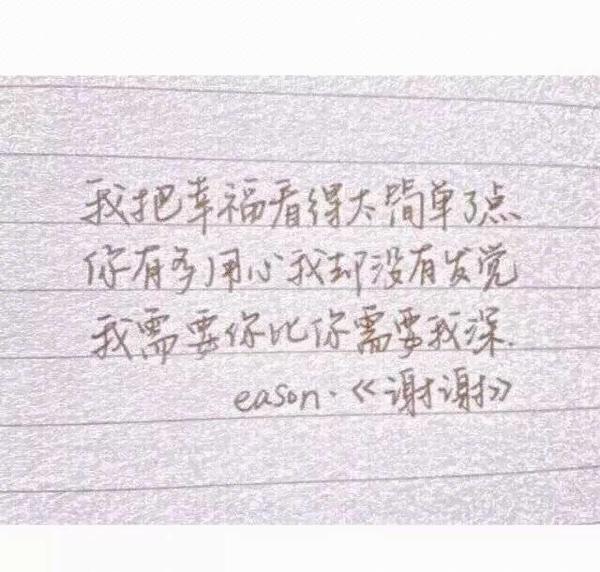 我把幸福看得太简单了点
你有多用心我却没有发觉
我需要你比你需要我深.
eason·《谢谢》